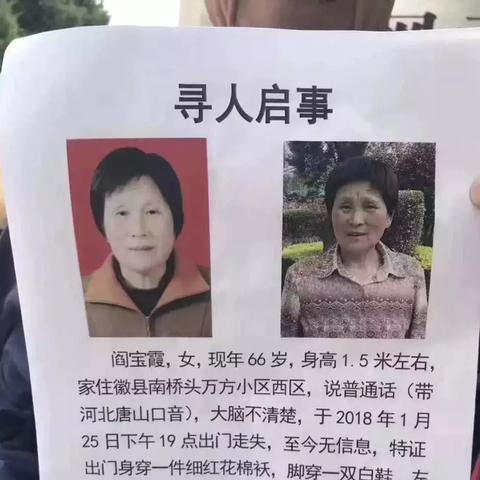 寻人启事
阎宝霞，女，现年 66 岁，身高 1.5 米左右，
家住徽县南桥头万方小区西区，说普通话（带
河北唐山口音），大脑不清楚，于 2018 年 1 月
25 日下午 19 点出门走失，至今无信息，特证
出门身穿一件细红花棉袄，脚穿一双白鞋，左